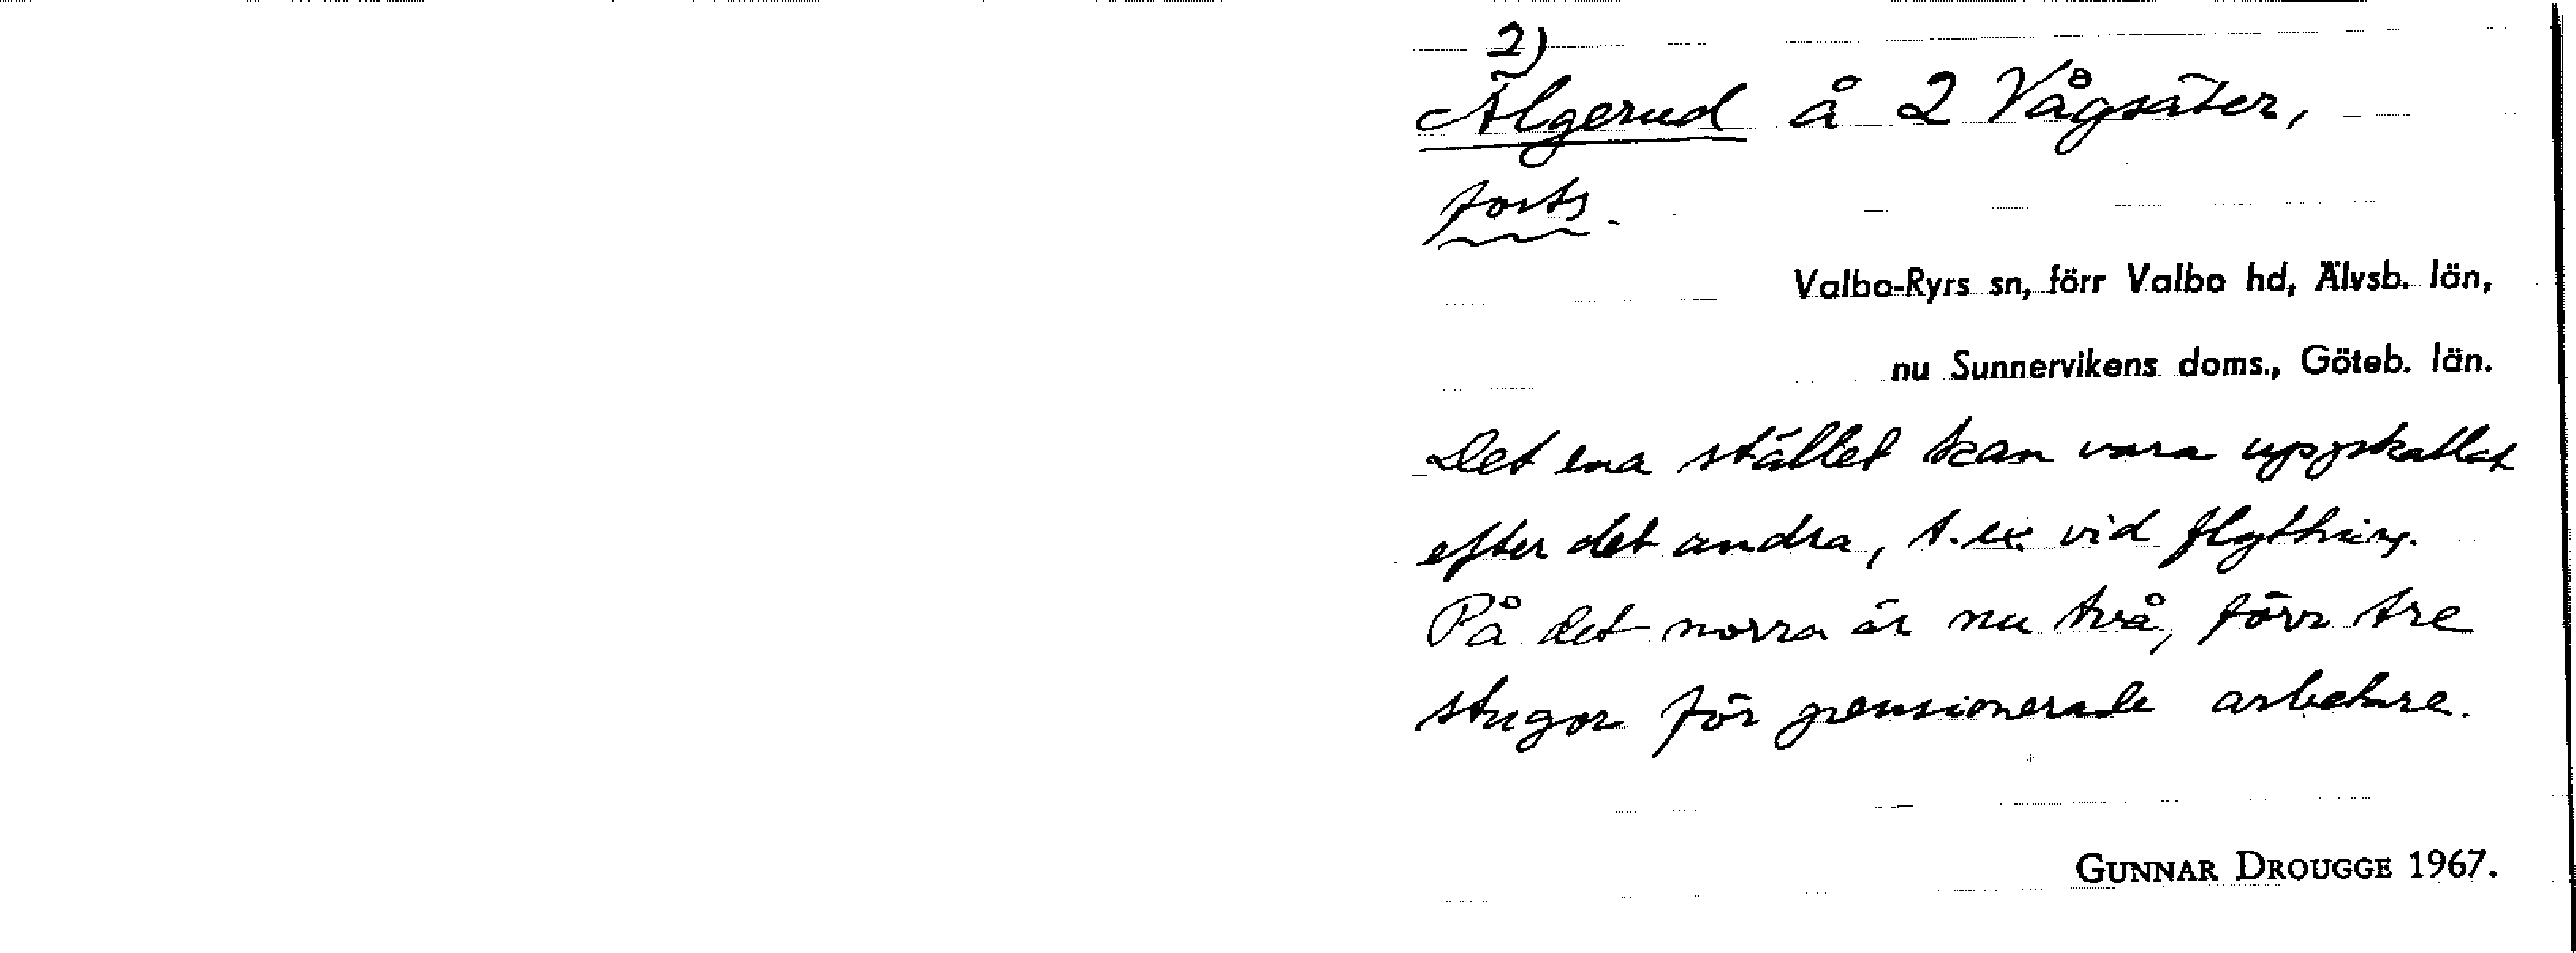 2)
Älgerud å 2 Vågsäter,
forts.
Valbo-Ryrs sn, förr Valbo hd, Älvsb. län,
nu Sunnervikens doms., Göteb. län.
Det ena stället kan vara uppkallat
efter det andra, t.ex. vid flyttning.
På det norra är nu två, förr tre
stugor för pensionerade arbetare.
GUNNAR DROUGGE 1967.